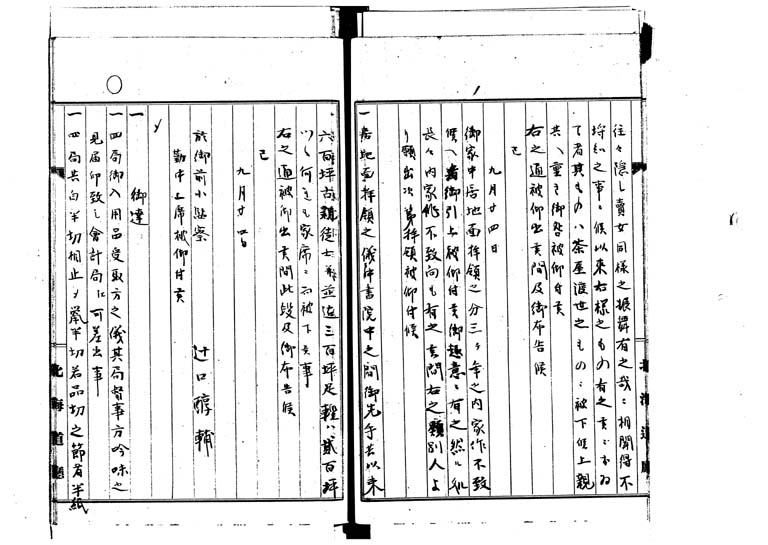 往々隠し賣女同様之振舞有之哉ニ相聞得不
埒知之事ニ候以来右様之もの有之候ハヽ
て者其ものハ茶屋渡世之ものニ被下候上親
共ハ重き御咎被仰付候
右之通被仰出候間及御布告候
已
九月廿四日
御家中居地面拝領之分三ヶ年之内家作不致
候ハ者御引上被仰付候御趣意ニ有之然ル処
長々内家作不致向も有之候間右之類別人よ
り願出次第拝領被仰付候
一居地面拝領之儀は書院中之間御先手共以来
六百坪諸徒士並迄三百坪足輕ハ貳百坪
ツヽ何れも家席ニ而被下候事
右之通被仰出候間此段及御布告候
已
九月廿四日
於御前小監察
勤中上席被仰付候
辻口醇輔
一 御達
一四局御入用品受取方之儀其局督事方吟味之
見届印致シ會計局江可差出事
一四局共白半切相止メ鼠半切若品切之節者半紙
北海道廳
北海道廳